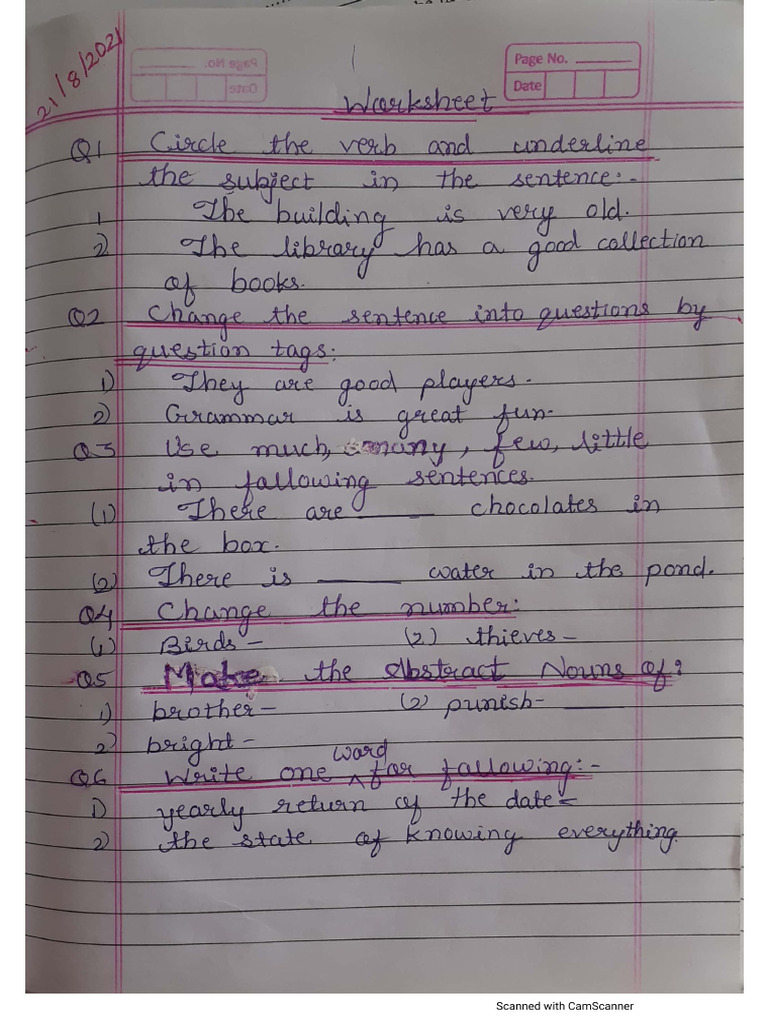 21/8/2021
Page No.
Date
Worksheet
Q1 Circle the verb and underline
the subject in the sentence:-
1 The building is very old.
2) The library has a good collection
of books.
Q2 Change the sentence into questions by
question tags:
1) They are good players.
2) Grammar is great fun.
Q3 Use much, many, few, little
in fallowing sentences.
(1) There are ______ chocolates in
the box.
(2) There is ______ water in the pond.
Q4 Change the number:
(1) Birds - (2) thieves -
Q5 Make the Abstract Nouns of:
1) brother - (2) punish - ______
2) bright -
Q6 Write one word for fallowing:-
1) yearly return of the date =
2) the state of knowing everything.
Scanned with CamScanner